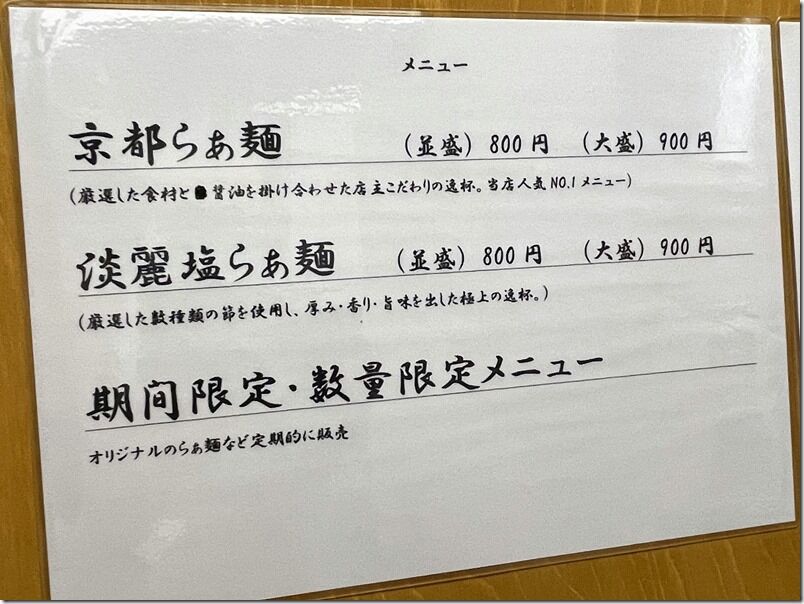 メニュー
京都らぁ麺 （並盛） 800円 （大盛） 900円
（厳選した食材と 醤油を掛け合わせた店主こだわりの逸杯。当店人気NO.1メニュー）
淡麗塩らぁ麺 （並盛） 800円 （大盛） 900円
（厳選した数種類の節を使用し、厚み・香り・旨味を出した極上の逸杯。）
期間限定・数量限定メニュー
オリジナルのらぁ麺など定期的に販売